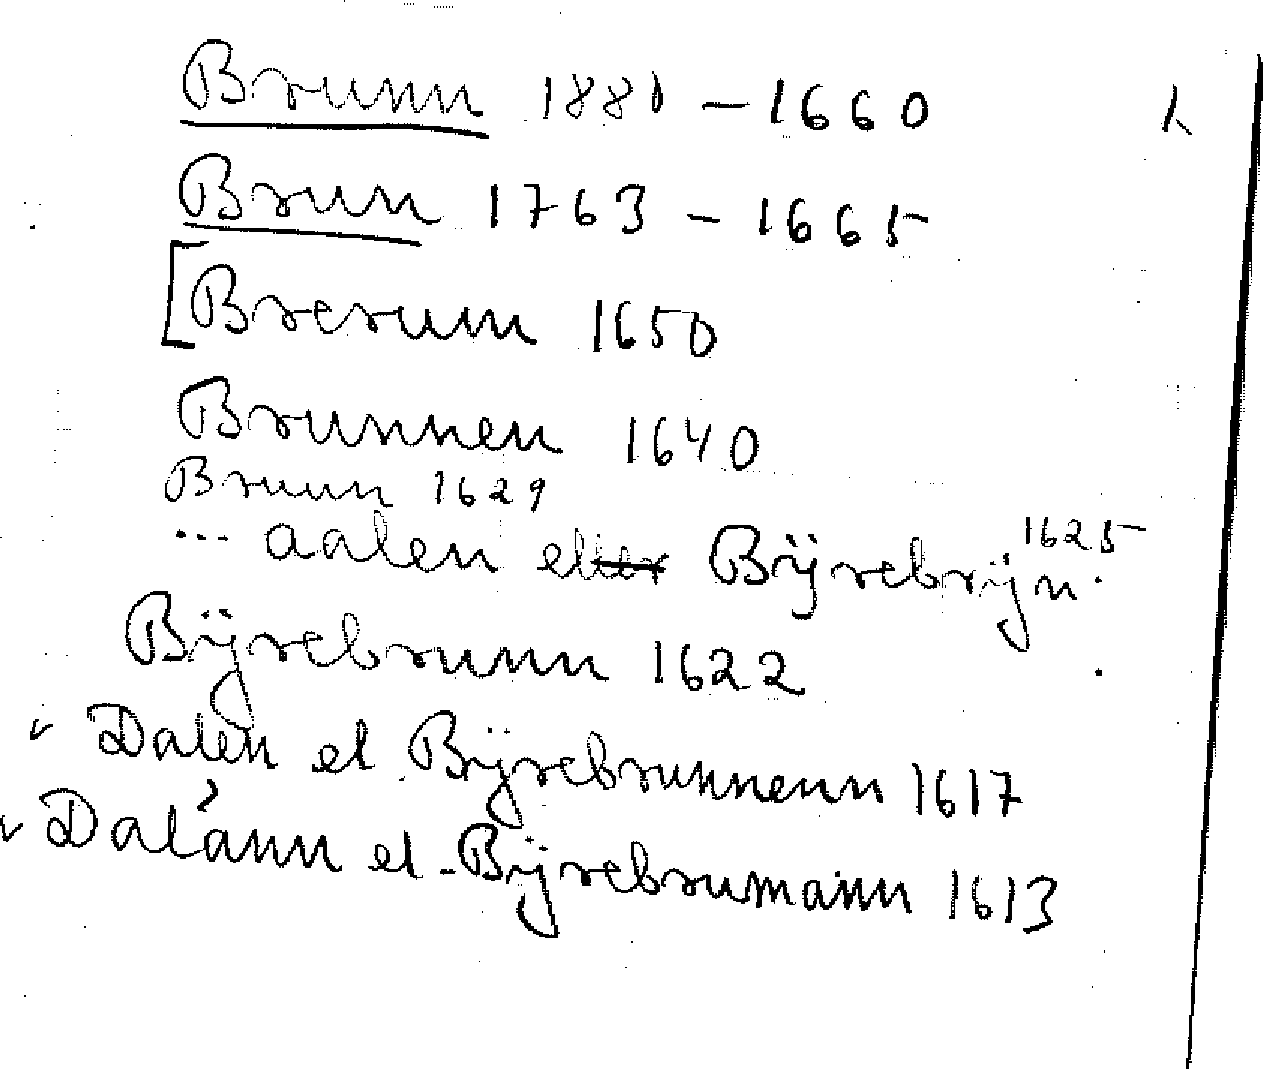 Brunn 1881 – 1660
Brun 1763 – 1665
[Brerum 1650
Brunnen 1640
Bruun 1629
... aalen eller Bÿrebrÿn 1625
Bÿrebrunn 1622
Dalen el Bÿrebrunnenn 1617
Dalánn el Bÿrebrumann 1613